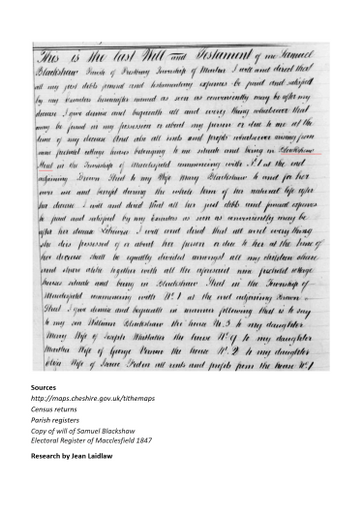 This is the last Will and Testament of me Samuel
Blackshaw of Township of I will and direct that
all my just debts funeral and testamentary expenses be paid and satisfied
by my Executors hereinafter named as soon as conveniently may be after my
decease I give devise and bequeath all and every thing whatsoever that
may be found in my possession or about my person or due to me at the
time of my decease And also all rents and profits whatsoever arising from
cottage houses belonging to me situate and being in Blackshaw
Street in the Township of Macclesfield commencing with Nº 1 at the end
adjoining Brown Street to my Wife Mary Blackshaw to and for her
own use and during the whole term of her natural life after
her decease I will and direct that all her just debts and funeral expenses
be paid and satisfied by my Executors as soon as conveniently may be
after her decease I will and direct that all and everything
she dies possessed of or about her person or due to her at the time of
her decease shall be equally divided amongst all my children share
and share alike together with all the aforesaid cottage
houses situate and being in Blackshaw Street in the Township of
Macclesfield commencing with Nº 1 at the end adjoining Brown
Street I give devise and bequeath in manner following that is to say
to my son William Blackshaw the house Nº 3 to my daughter
Mary Wife of Joseph the house Nº 4 to my daughter
Martha Wife of George the house Nº 2 to my daughter
Wife of all rents and profits from the house Nº 1
Sources
http://maps.cheshire.gov.uk/tithemaps
Census returns
Parish registers
Copy of will of Samuel Blackshaw
Electoral Register of Macclesfield 1847
Research by Jean Laidlaw